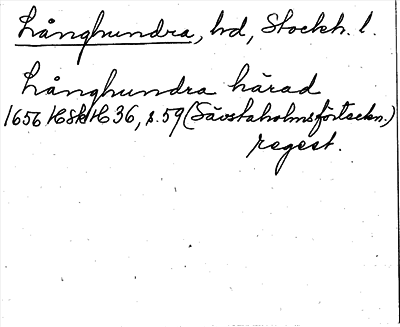 Långhundra, hd, Stockh. l.
Långhundra härad
1656 HSH 36, s. 59 (Sävstaholmsförteckn.)
regest.